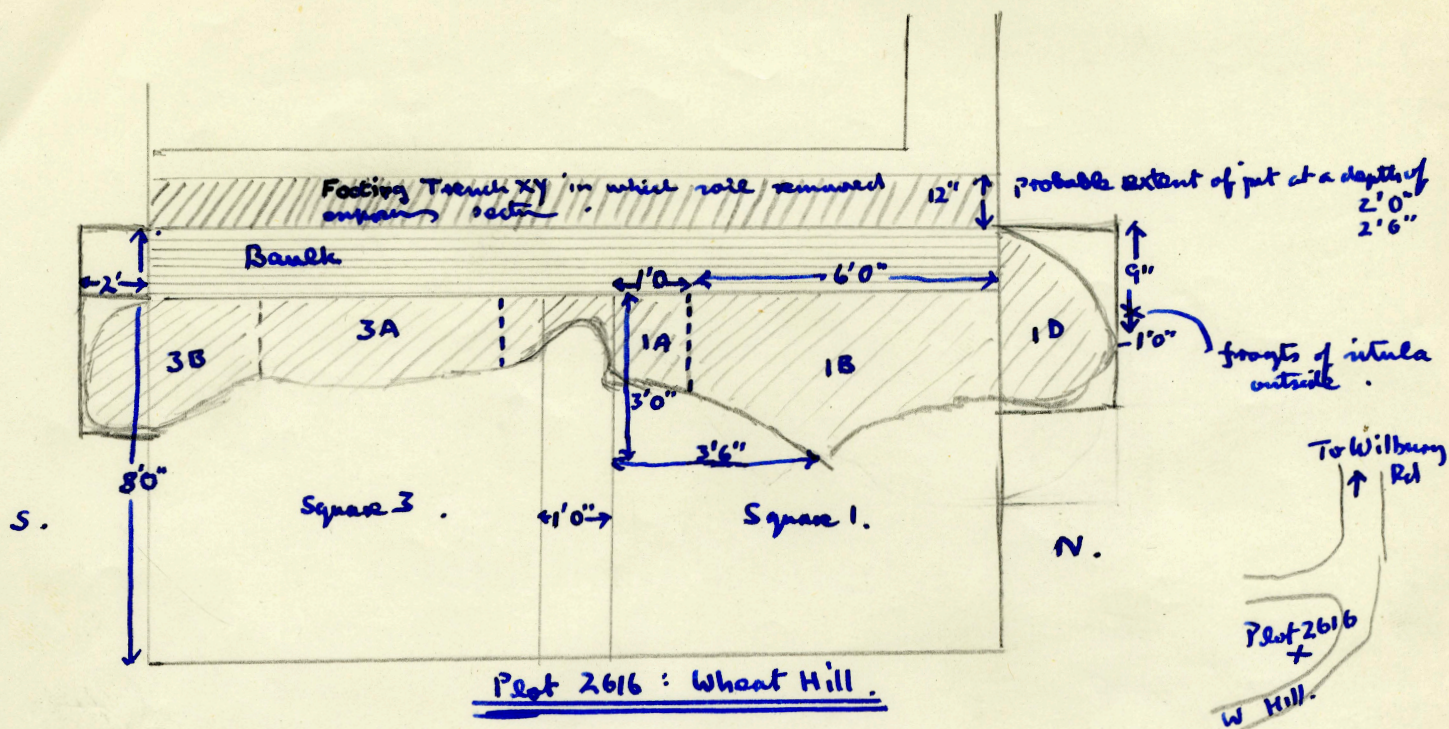 Footing Trench XY in which soil removed
exposing section.
12"
probable extent of pit at a depth of
2'0"
2'6"
Baulk
2'
1'0
6'0"
9"
1'0"
3B
3A
1A
1B
1D
fragts of situla
outside.
3'0"
3'6"
8'0"
S.
Square 3.
1'0"
Square 1.
N.
To Wilbury
Rd
Plot 2616
W Hill.
Plot 2616: Wheat Hill.